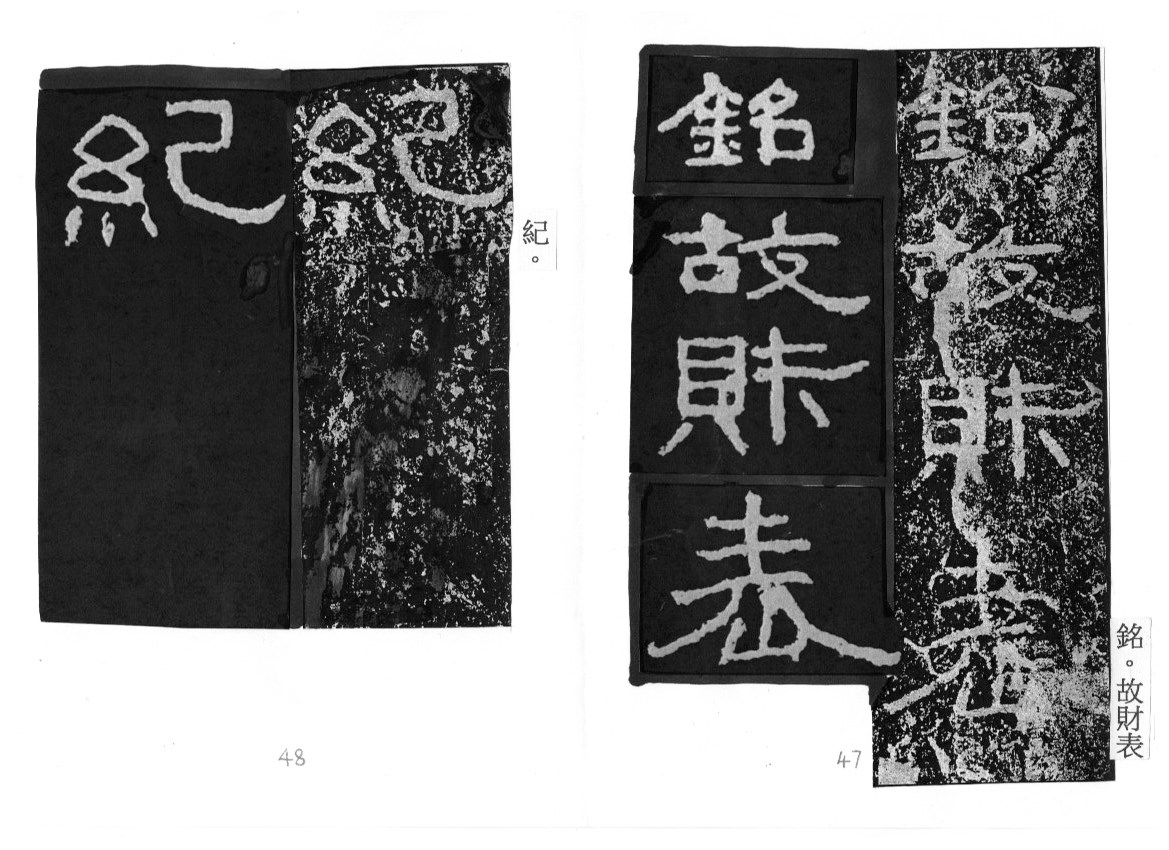 銘。故財表
銘故財表
銘故財表
47
紀。
紀
紀
48